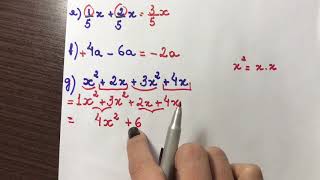 e) 1/5 x + 2/5 x = 3/5 x
f) +4a - 6a = -2a
g) x² + 2x + 3x² + 4x
= 1x² + 3x² + 2x + 4x
= 4x² + 6
x² = x . x